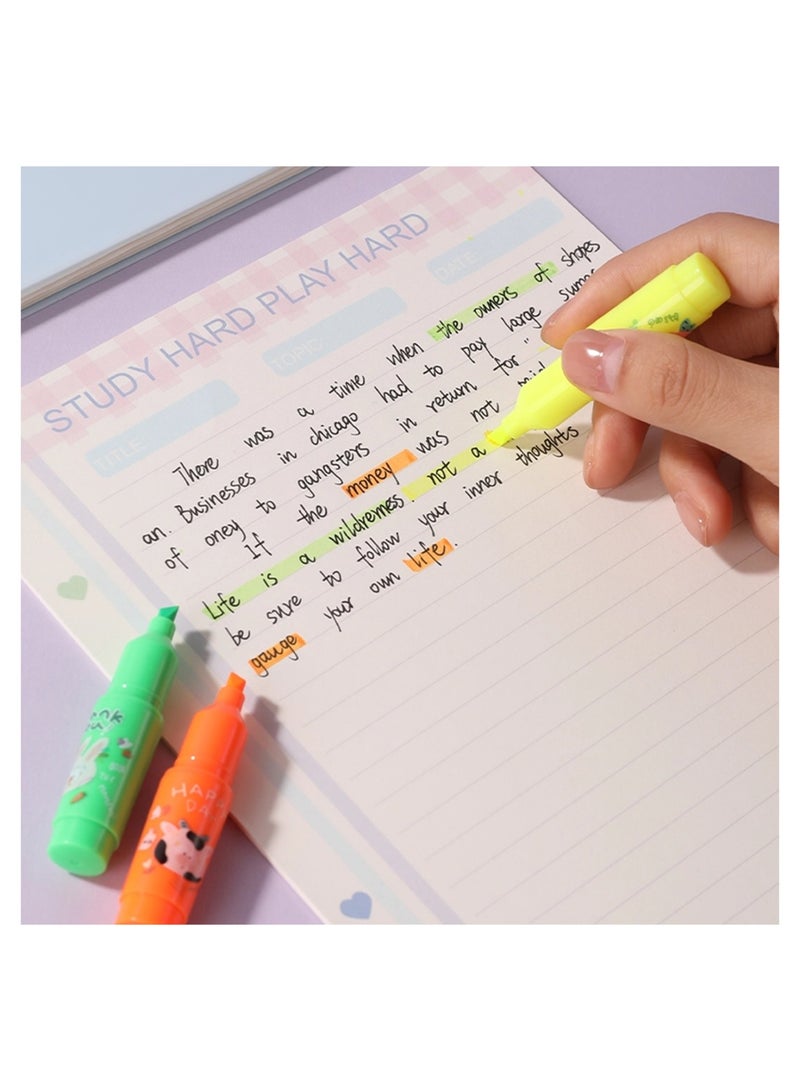 STUDY HARD PLAY HARD
TITLE TOPIC DATE
There was a time when the owners of shopes
an. Businesses in chicago had to pay large
of oney to gangsters in return for "
If the money was not
Life is a wilderness. not a
be sure to follow your inner thoughts
gauge your own life.